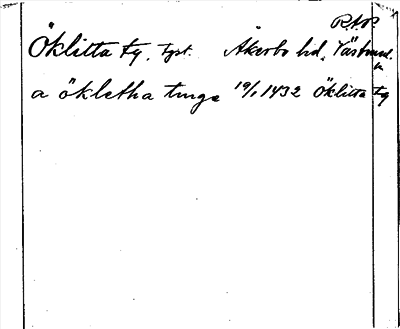 R.A.P.
Öklitta tg. Tpst. Åkerbo hd. Västmanl.
a ökletha tinge 19/1 1432 Öklitta tg